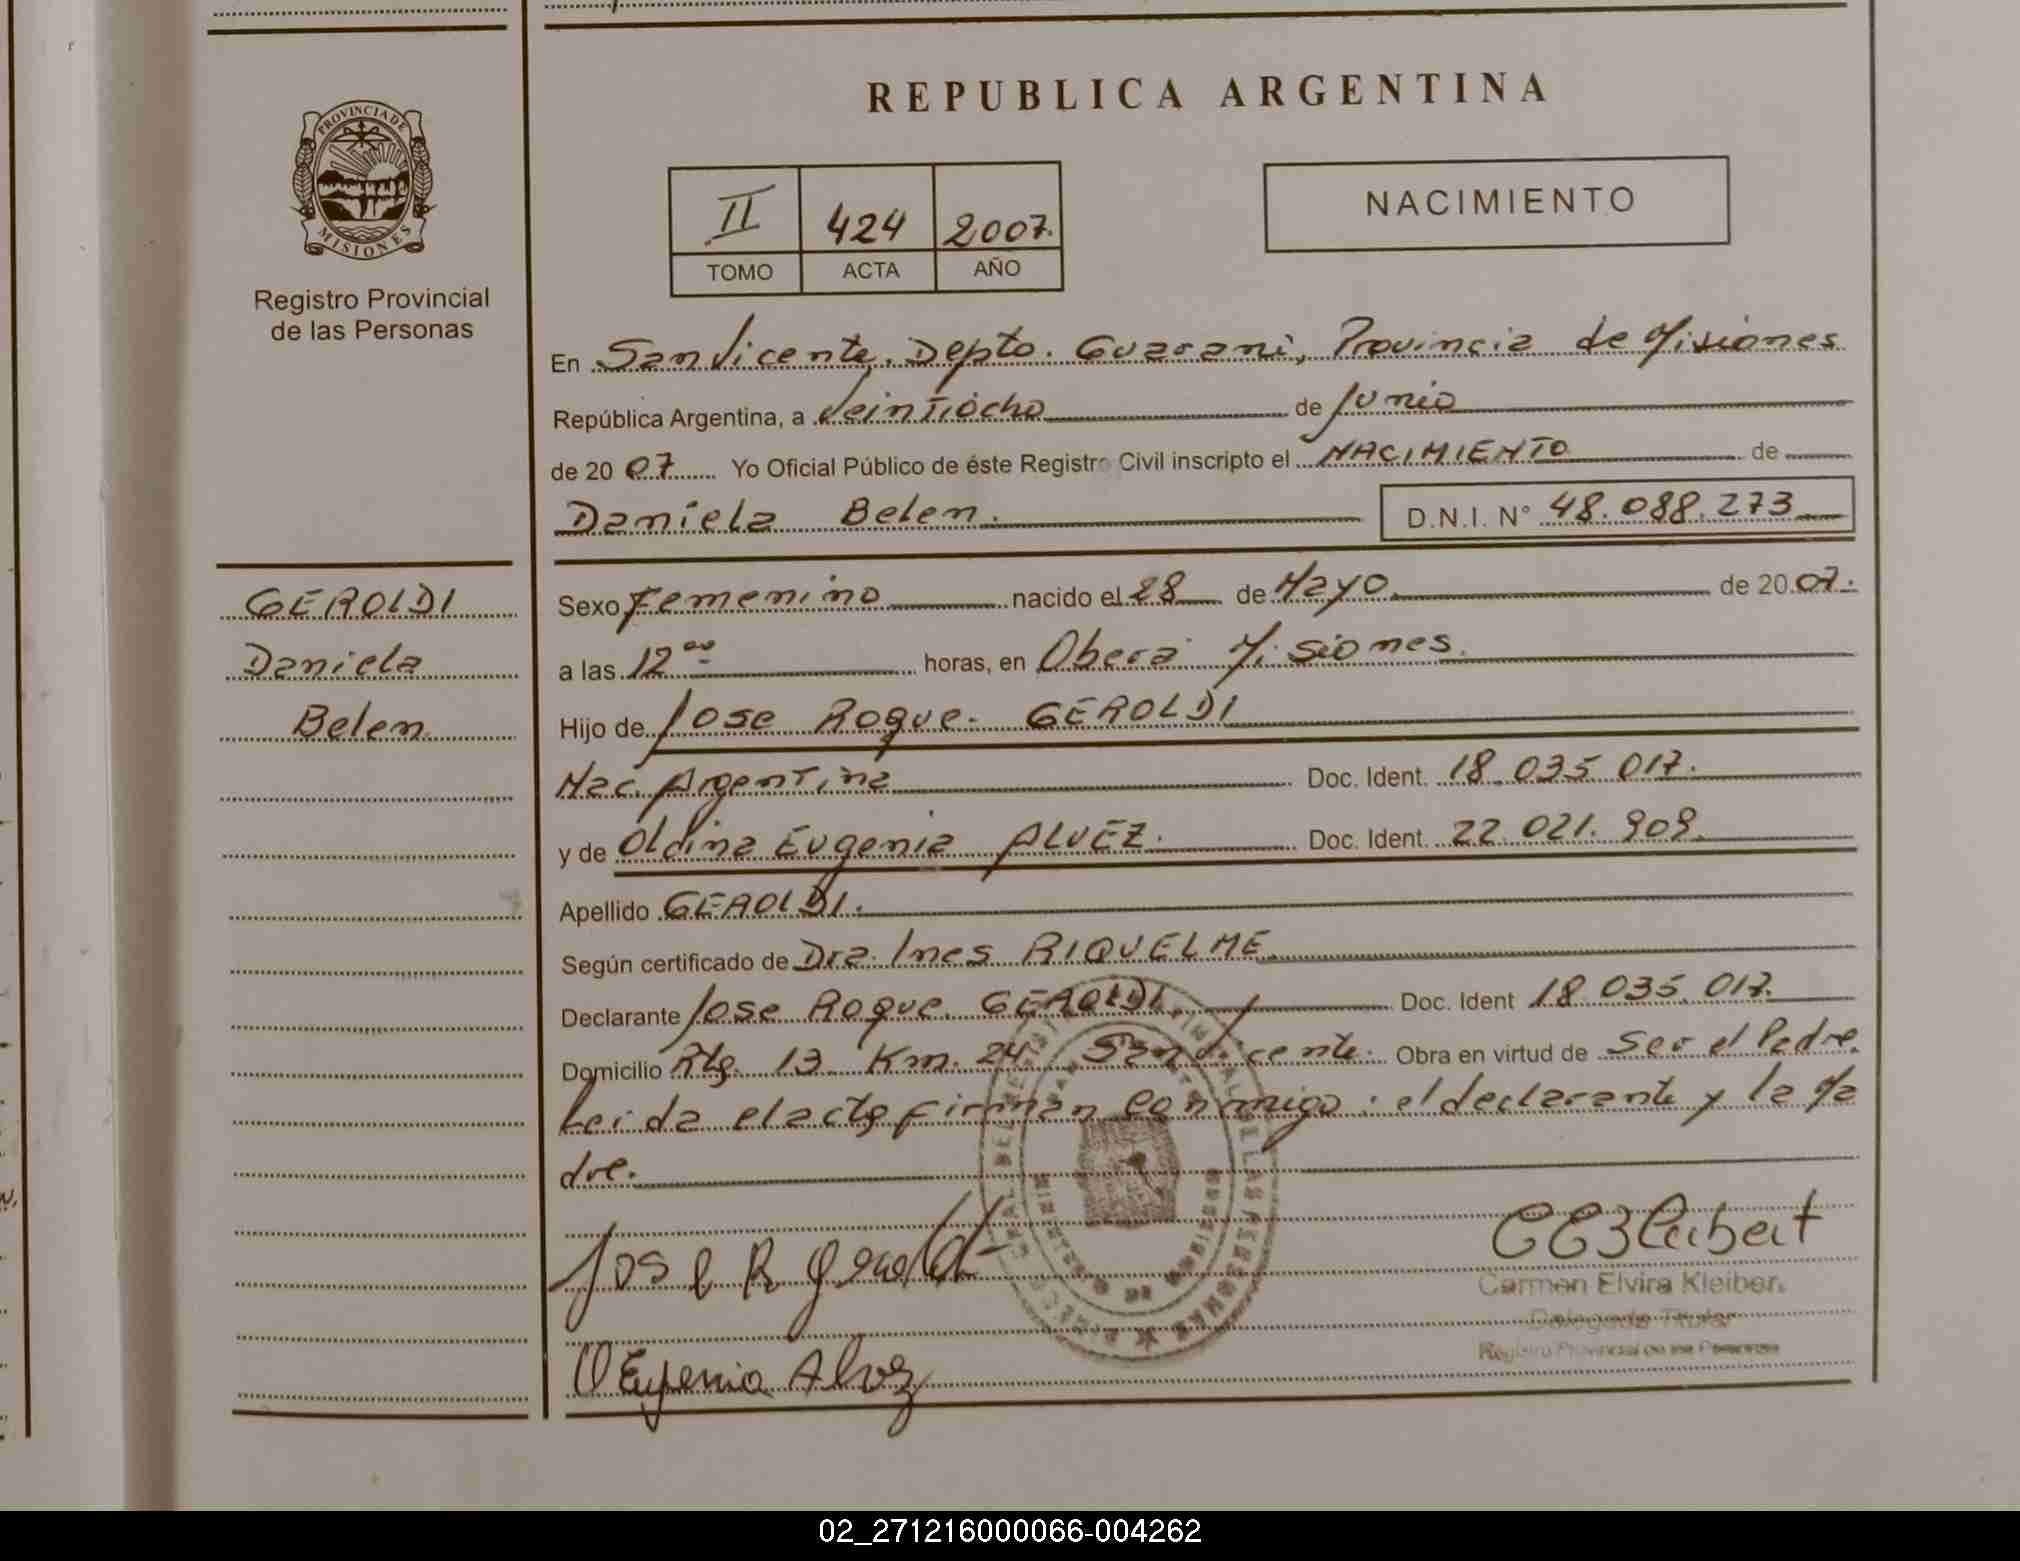 REPUBLICA ARGENTINA
PROVINCIA DE
MISIONES
Registro Provincial
de las Personas
II 424 2007.
TOMO ACTA AÑO
NACIMIENTO
En San Vicente, Depto. Guarani, Provincia de Misiones
República Argentina, a Veintiocho de Junio
de 20 07 Yo Oficial Público de éste Registro Civil inscripto el NACIMIENTO de
Daniela Belen. D.N.I. N° 48.088.273
GEROLDI
Daniela
Belen
Sexo Femenino nacido el 28 de Mayo de 20 07.
a las 12 00 horas, en Obera Misiones.
Hijo de Jose Roque GEROLDI
Nac. Argentina Doc. Ident. 18.035.017.
y de Oldina Eugenia ALVEZ. Doc. Ident. 22.021.909.
Apellido GEROLDI.
Según certificado de Dra. Ines RIQUELME
Declarante Jose Roque GEROLDI. Doc. Ident 18.035.017.
Domicilio Rta. 13 Km. 24 San Vicente. Obra en virtud de Ser el Padre.
Leida el acta firman conmigo: el declarante y la Ma
dre.
Jose R Geroldi
O Eugenia Alvez
Carmen Elvira Kleiber
Delegada Titular
Registro Provincial de las Personas
02_271216000066-004262